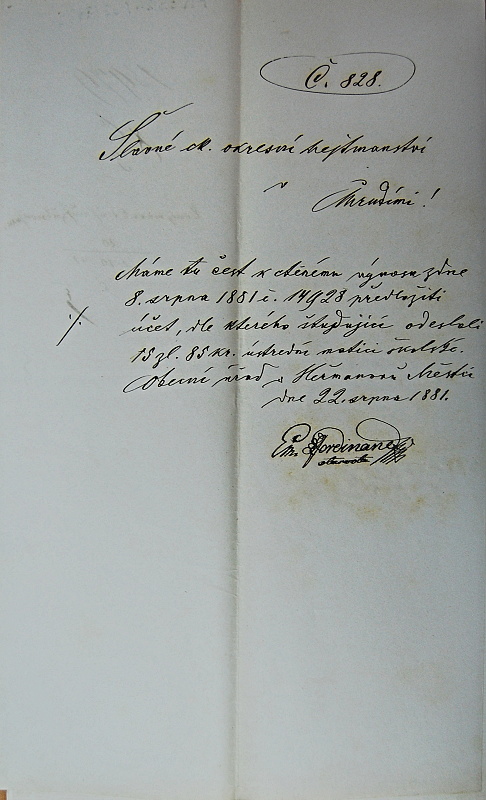 Č. 828.
Slavné ck. okresní hejtmanství
v
Chrudimi!
Máme tu čest k ctěnému výnosu z dne
8. srpna 1881 č. 14923 předložiti
·/. účet, dle kterého študující odeslali
15 zl. 85 kr. ústřední matici školské.
Obecní úřad v Heřmanově Městci
dne 22. srpna 1881.
Em. Nordinand
starosta